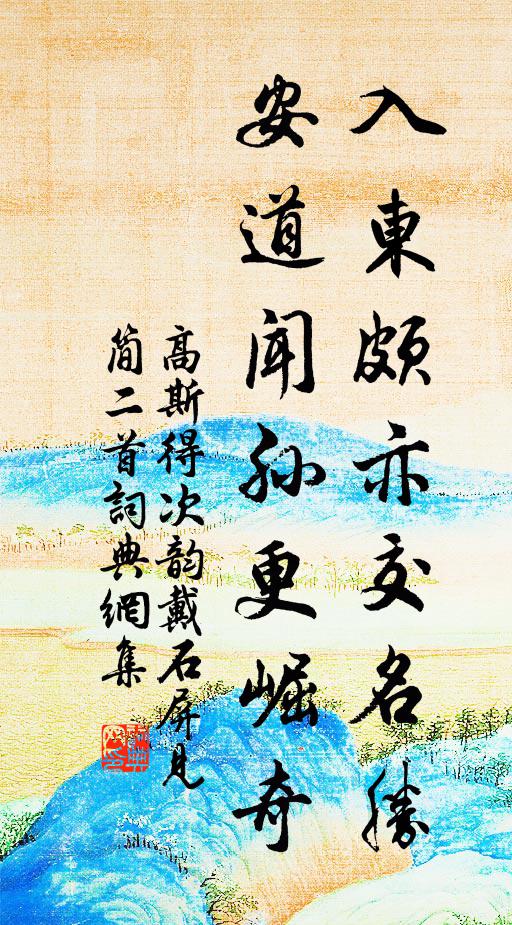 入東頗亦交名勝
安道聞孫更崛奇
高斯得次韵戴石屏見
简二首詞典網集